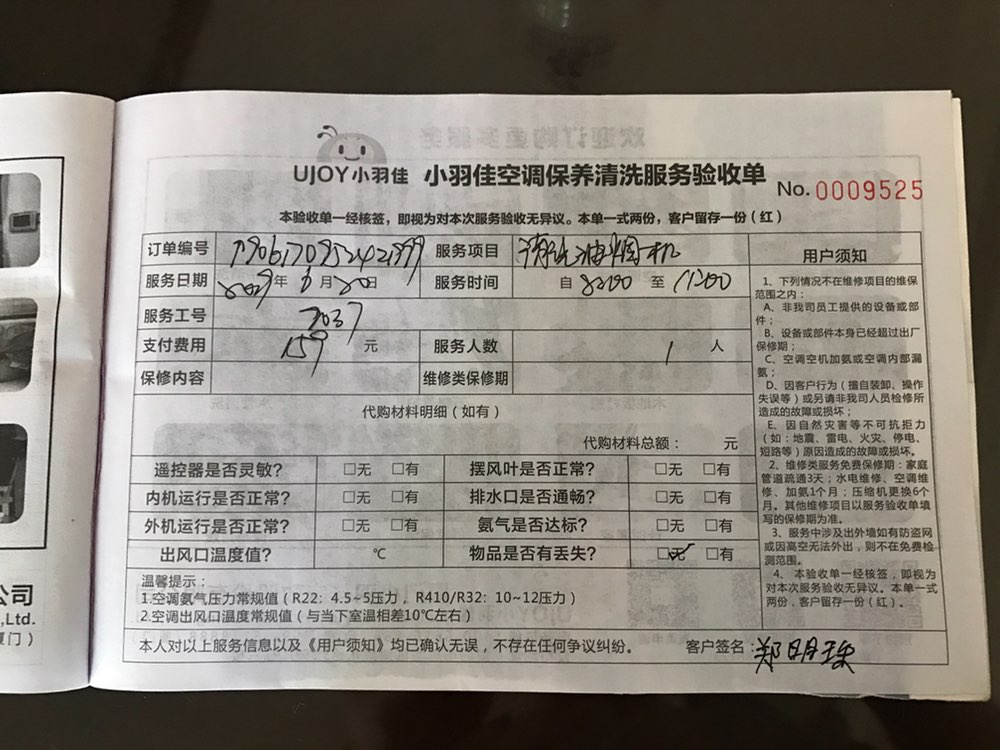 UJOY小羽佳 小羽佳空调保养清洗服务验收单 No.0009525
本验收单一经核签，即视为对本次服务验收无异议。本单一式两份，客户留存一份（红）
订单编号 服务项目 清洗油烟机
服务日期 2019年6月20日 服务时间 自8:00至11:00
服务工号 7037
支付费用 159元 服务人数 1人
保修内容 维修类保修期
代购材料明细（如有）
代购材料总额： 元
遥控器是否灵敏? □无 □有 摆风叶是否正常? □无 □有
内机运行是否正常? □无 □有 排水口是否通畅? □无 □有
外机运行是否正常? □无 □有 氨气是否达标? □无 □有
出风口温度值? ℃ 物品是否有丢失? □无 □有
温馨提示：
1.空调氨气压力常规值（R22：4.5~5压力，R410/R32：10~12压力）
2.空调出风口温度常规值（与当下室温相差10℃左右）
本人对以上服务信息以及《用户须知》均已确认无误，不存在任何争议纠纷。 客户签名：郑明珠
用户须知
1、下列情况不在维修项目的维保
范围之内：
A、非我司员工提供的设备或部
件；
B、设备或部件本身已经超过出厂
保修期；
C、空调空机加氨或空调内部漏
氨；
D、因客户行为（擅自装卸、操作
失误等）或另请非我司人员检修所
造成的故障或损坏；
E、因自然灾害等不可抗拒力
（如：地震、雷电、火灾、停电、
短路等）原因造成的故障或损坏。
2、维修类服务免费保修期：家庭
管道疏通3天；水电维修、空调维
修、加氨1个月；压缩机更换6个
月。其他维修项目以服务验收单填
写的保修期为准。
3、服务中涉及出外墙如有防盗网
或因高空无法外出，则不在免费检
测范围。
4、本验收单一经核签，即视为
对本次服务验收无异议。本单一式
两份，客户留存一份（红）。
公司
,Ltd.
厦门）